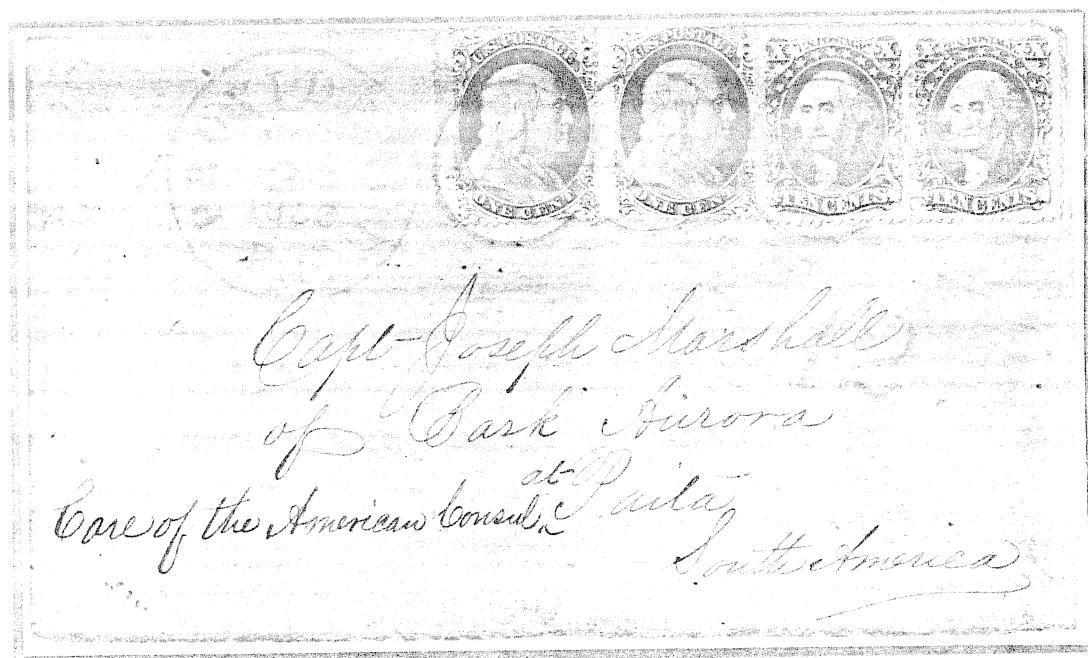 U.S. POSTAGE U.S. POSTAGE U.S. POSTAGE
ONE CENT ONE CENT TEN CENTS TEN CENTS
Capt Joseph Marshall
of Bark Aurora
at Paita
Care of the American Consul,
South America